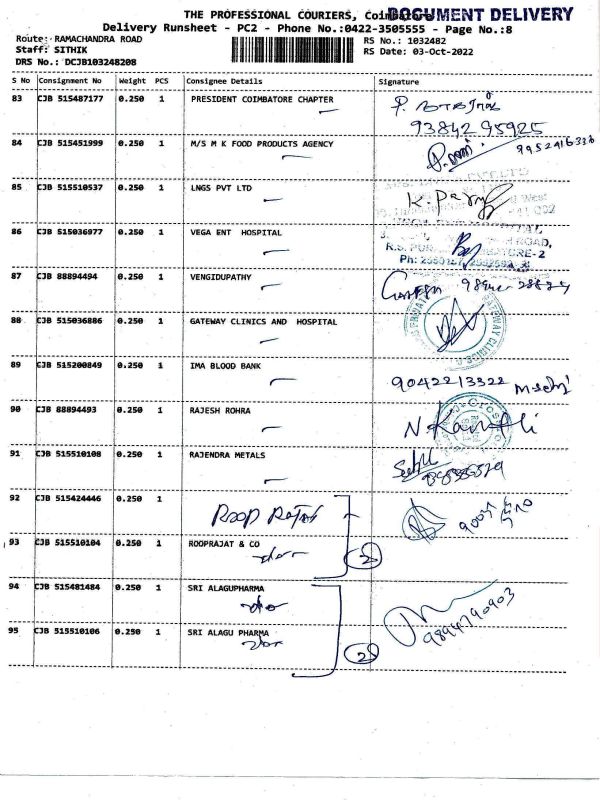 THE PROFESSIONAL COURIERS, Coimbatore
DOCUMENT DELIVERY
Delivery Runsheet - PC2 - Phone No.:0422-3505555 - Page No.:8
Route: RAMACHANDRA ROAD
RS No.: 1032482
Staff: SITHIK
RS Date: 03-Oct-2022
DRS No.: DCJB103248208
S No Consignment No Weight PCS Consignee Details Signature
83 CJB 515487177 0.250 1 PRESIDENT COIMBATORE CHAPTER
9384295925
84 CJB 515451999 0.250 1 M/S M K FOOD PRODUCTS AGENCY
9952416336
85 CJB 515510537 0.250 1 LNGS PVT LTD
86 CJB 515036977 0.250 1 VEGA ENT HOSPITAL
87 CJB 88894494 0.250 1 VENGIDUPATHY
88 CJB 515036886 0.250 1 GATEWAY CLINICS AND HOSPITAL
GATEWAY CLINICS
89 CJB 515200849 0.250 1 IMA BLOOD BANK
9042213322
90 CJB 88894493 0.250 1 RAJESH ROHRA
91 CJB 515510108 0.250 1 RAJENDRA METALS
92 CJB 515424446 0.250 1 ROOP RAJAT
93 CJB 515510104 0.250 1 ROOPRAJAT & CO
2
94 CJB 515481484 0.250 1 SRI ALAGUPHARMA
95 CJB 515510106 0.250 1 SRI ALAGU PHARMA
9894790903
2